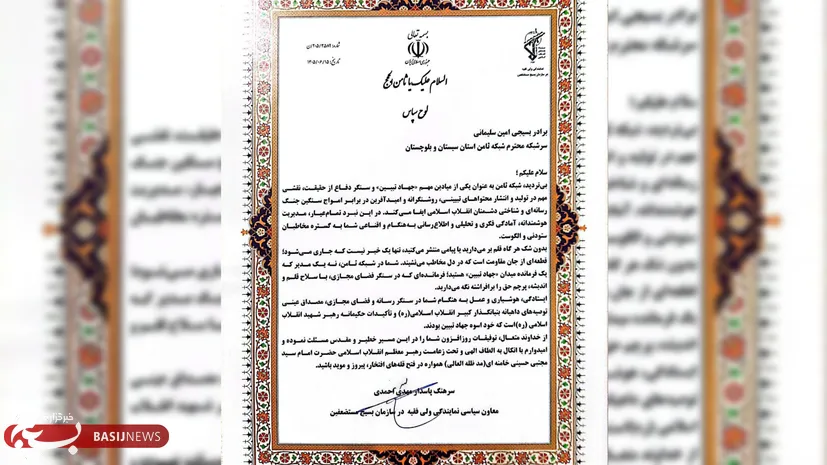 بسمه تعالی
جمهوری اسلامی ایران
نمایندگی ولی فقیه
در سازمان بسیج مستضعفین
السلام علیک یا ثامن الحجج
لوح سپاس
برادر بسیجی امین سلیمانی
سرشبکه محترم شبکه ثامن استان سیستان و بلوچستان
سلام علیکم؛
بی‌تردید، شبکه ثامن به عنوان یکی از میادین مهم «جهاد تبیین» و سنگر دفاع از حقیقت، نقشی
مهم در تولید و انتشار محتواهای تبیینی، روشنگرانه و امیدآفرین در برابر امواج سنگین جنگ
رسانه‌ای و شناختی دشمنان انقلاب اسلامی ایفا می‌کند. در این نبرد تمام‌عیار، مدیریت
هوشمندانه، آمادگی فکری و تحلیلی و اطلاع‌رسانی به‌هنگام و اقناعی شما به گستره مخاطبان
ستودنی و الگوست.
بدون شک هر گاه قلم بر می‌دارید یا پیامی منتشر می‌کنید، تنها یک خبر نیست که جاری می‌شود؛
قطعه‌ای از جان مقاومت است که در دل مخاطب می‌نشیند. شما در شبکه ثامن، نه یک مدیر که
یک فرمانده میدان «جهاد تبیین» هستید؛ فرمانده‌ای که در سنگر فضای مجازی، با سلاح قلم و
اندیشه، پرچم حق را برافراشته نگه می‌دارید.
ایستادگی، هوشیاری و عمل به هنگام شما در سنگر رسانه و فضای مجازی، مصداق عینی
توصیه‌های داهیانه بنیانگذار کبیر انقلاب اسلامی(ره) و تأکیدات حکیمانه رهبر شهید انقلاب
اسلامی (ره) است که خود اسوه جهاد تبیین بودند.
از خداوند متعال، توفیقات روزافزون شما را در این مسیر خطیر و مقدس مسئلت نموده و
امیدوارم با اتکال به الطاف الهی و تحت زعامت رهبر معظم انقلاب اسلامی حضرت امام سید
مجتبی حسینی خامنه ای(مد ظله العالی) همواره در فتح قله‌های افتخار، پیروز و موید باشید.
سرهنگ پاسدار مهدی احمدی
معاون سیاسی نمایندگی ولی فقیه در سازمان بسیج مستضعفین
خبرگزاری
بسیج
BASIJNEWS